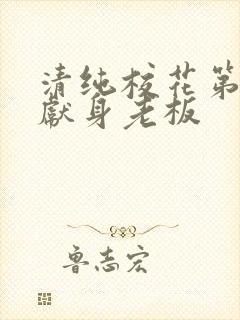 清纯校花第
献身老板
鲁志宏